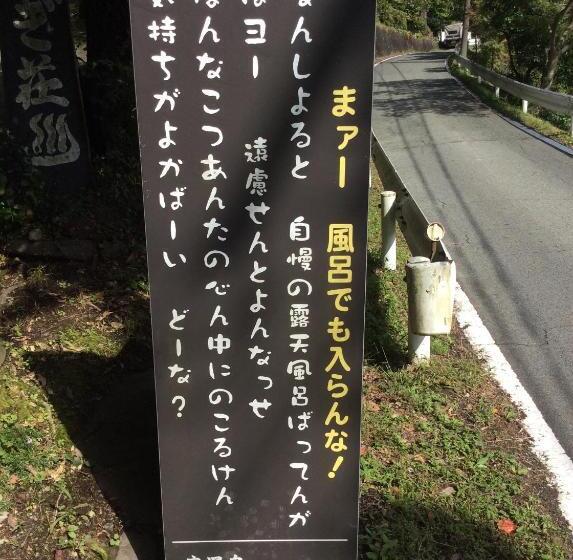 まァー 風呂でも入らんな!
なんしよると 自慢の露天風呂ばってんが
はヨー 遠慮せんとよんなっせ
なんなこつあんたの心ん中にのこるけん
気持ちがよかばーい どーな?
荘